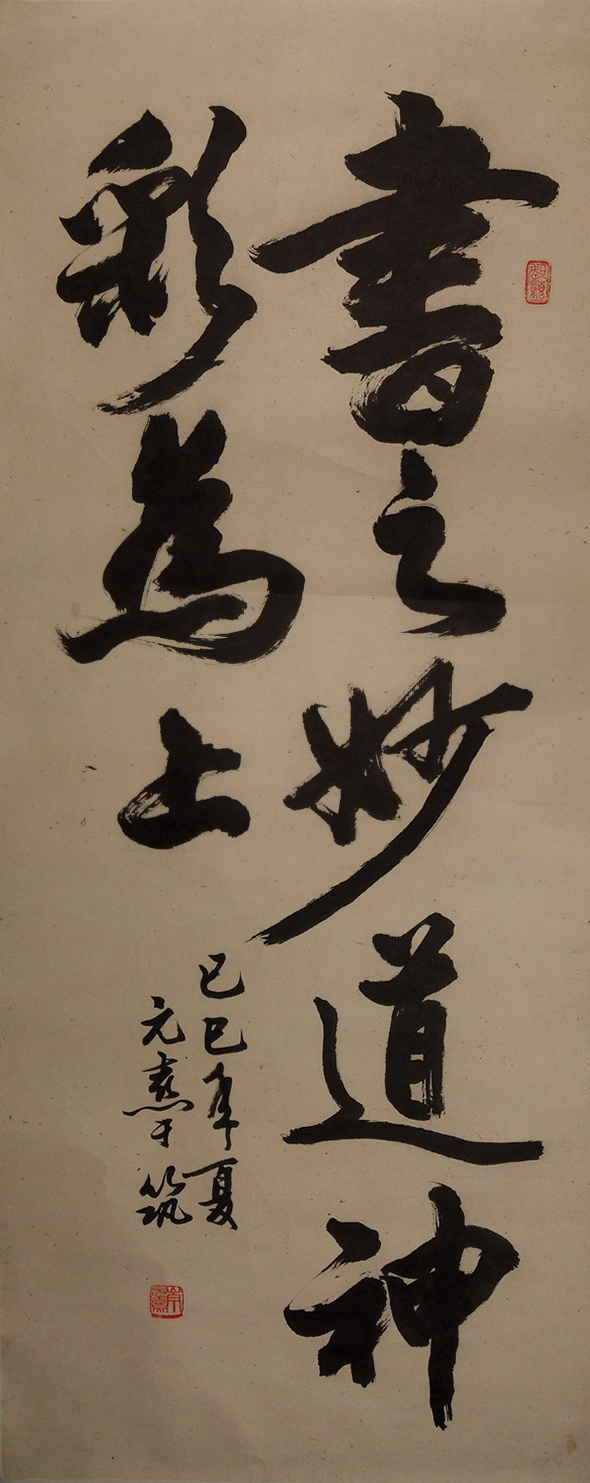 書之妙道神
彩為上
己巳年夏
元憙于筑